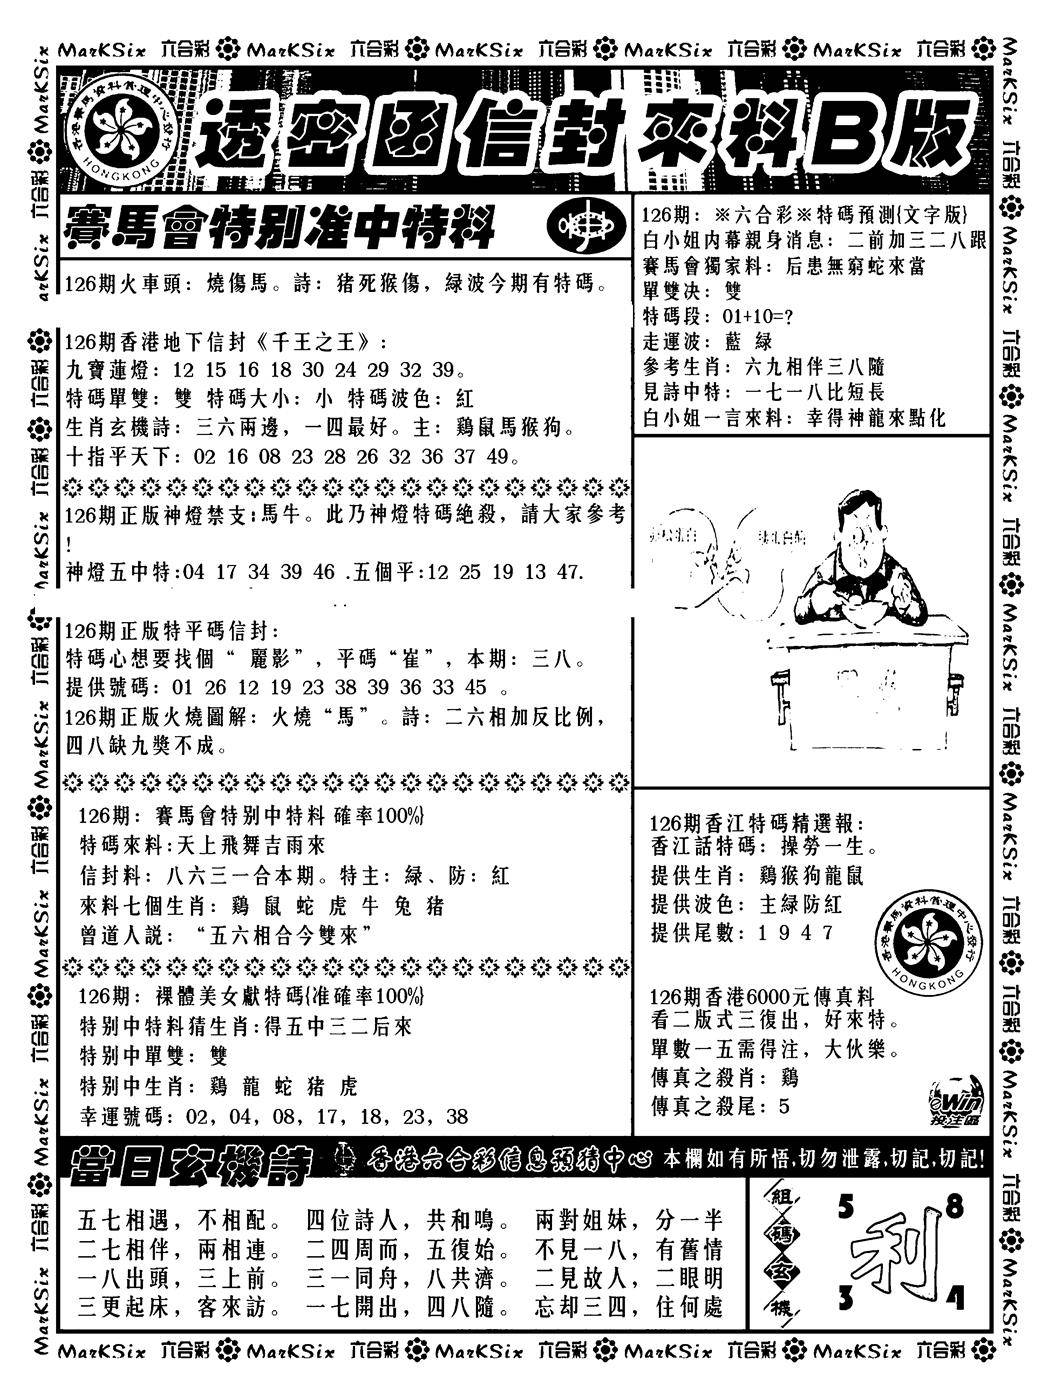 MarKSix 六合彩 MarKSix 六合彩 MarKSix 六合彩 MarKSix 六合彩 MarKSix 六合彩
透密函信封來料B版
香港賽馬資料管理中心發行
HONGKONG
賽馬會特别准中特料
126期火車頭：燒傷馬。詩：猪死猴傷，緑波今期有特碼。
126期香港地下信封《千王之王》：
九寶蓮燈：12 15 16 18 30 24 29 32 39。
特碼單雙：雙 特碼大小：小 特碼波色：紅
生肖玄機詩：三六兩邊，一四最好。主：鷄鼠馬猴狗。
十指平天下：02 16 08 23 28 26 32 36 37 49。
126期正版神燈禁支:馬牛。此乃神燈特碼絶殺，請大家參考
!
神燈五中特:04 17 34 39 46 .五個平:12 25 19 13 47.
126期正版特平碼信封：
特碼心想要找個“ 麗影”，平碼“崔”，本期：三八。
提供號碼：01 26 12 19 23 38 39 36 33 45 。
126期正版火燒圖解：火燒“馬”。詩：二六相加反比例，
四八缺九獎不成。
126期：賽馬會特别中特料 確率100%}
特碼來料:天上飛舞吉雨來
信封料：八六三一合本期。特主：緑、防：紅
來料七個生肖：鷄 鼠 蛇 虎 牛 兔 猪
曾道人説：“五六相合今雙來”
126期：裸體美女獻特碼{准確率100%}
特别中特料猜生肖:得五中三二后來
特别中單雙：雙
特别中生肖：鷄 龍 蛇 猪 虎
幸運號碼：02，04，08，17，18，23，38
126期：※六合彩※特碼預測{文字版}
白小姐内幕親身消息：二前加三二八跟
賽馬會獨家料：后患無窮蛇來當
單雙决：雙
特碼段：01+10=?
走運波：藍 緑
參考生肖：六九相伴三八隨
見詩中特：一七一八比短長
白小姐一言來料：幸得神龍來點化
126期香江特碼精選報：
香江話特碼：操勞一生。
提供生肖：鷄猴狗龍鼠
提供波色：主緑防紅
提供尾數：1 9 4 7
香港賽馬資料管理中心發行
HONGKONG
126期香港6000元傳真料
看二版式三復出，好來特。
單數一五需得注，大伙樂。
傳真之殺肖：鷄
傳真之殺尾：5
eWin
投注區
當日玄機詩 香港六合彩信息預猜中心 本欄如有所悟,切勿泄露,切記,切記!
五七相遇，不相配。 四位詩人，共和鳴。 兩對姐妹，分一半
二七相伴，兩相連。 二四周而，五復始。 不見一八，有舊情
一八出頭，三上前。 三一同舟，八共濟。 二見故人，二眼明
三更起床，客來訪。 一七開出，四八隨。 忘却三四，住何處
組碼玄機
5 8
利
3 4
MarKSix 六合彩 MarKSix 六合彩 MarKSix 六合彩 MarKSix 六合彩 MarKSix 六合彩